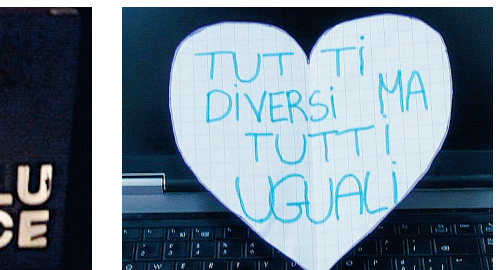 LU
CE
TUT TI
DIVERSI MA
TUTTI
UGUALI